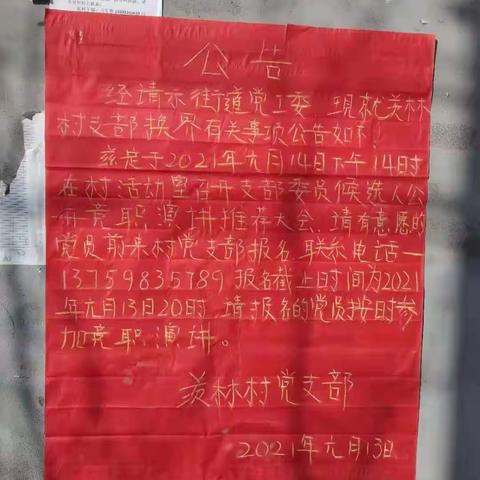 公告
经请示街道党工委 现就羙林
村支部换界有关事项公告如下
兹定于2021年元月14日下午14时
在村活动室召开支部委员候选人公
开竞职演讲推荐大会、请有意愿的
党员前来村党支部报名 联系电话一
13759835789 报名截止日时间为2021
年元月13日20时 请报名的党员按时参
加竞职演讲。
羙林村党支部
2021年元月13日